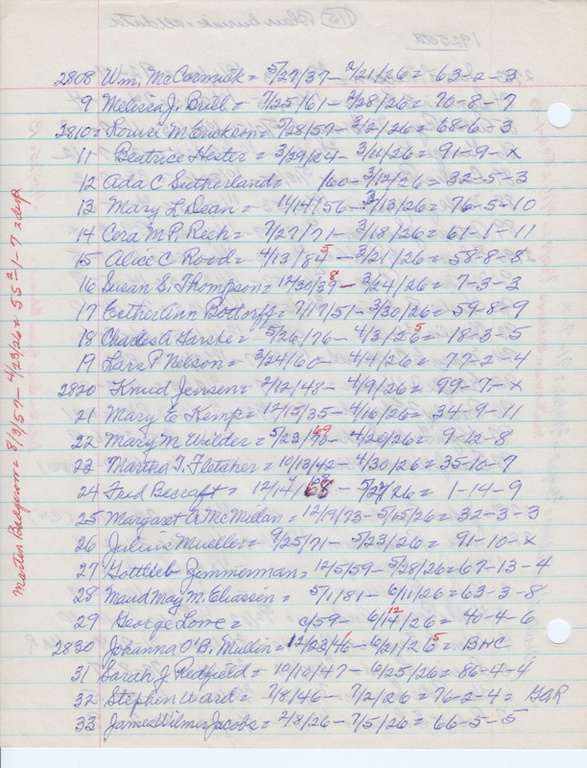 2808 Wm. McCormick = 5/27/37 - 2/21/26 = 63-2-3
9 Melissa J. Brill = 7/25/61 - 2/28/26 = 70-8-7
2810 = M. Erickson = 7/28/57 - 3/2/26 = 68-6-3
11 Beatrice Hester = 3/29/24 - 3/11/26 = 91-9-x
12 Ada C Sutherland = /60 - 3/12/26 = 32-5-3
13 Mary L Dean = 11/14/56 - 3/13/26 = 76-5-10
14 Cora M. P. Rech = 7/27/71 - 3/18/26 = 61-1-11
15 Alice C Rood = 4/13/84 5 - 3/21/26 = 58-8-8
16 Susan S. Thompson = 12/30/39 8 - 3/24/26 = 7-3-3
17 Esther Ann Bottorff = 7/17/51 - 3/30/26 = 59-8-9
18 Charles A = 5/26/76 - 4/3/26 5 = 18-3-5
19 Lars P Nelson = 3/24/60 - 4/4/26 = 77-2-4
2820 Knud Jensen = 2/12/48 - 4/9/26 = 99-7-x
21 Mary E Kemp = 12/15/35 - 4/16/26 = 34-9-11
22 Mary M Wilder = 5/23/ 69 - 4/20/26 = 9-12-8
23 Martha T. Fletcher = 10/13/42 - 4/30/26 = 35-10-7
24 Fred Becraft = 12/14/ 68 - 5/27/26 = 1-14-9
25 Margaret A McMillan = 12/19/73 - 5/15/26 = 32-3-3
26 Julius Mueller = 9/25/71 - 5/23/26 = 91-10-x
27 Gottlieb Zimmerman = 12/5/59 - 5/28/26 = 67-13-4
28 Maud May M. Eliassen = 5/1/81 - 6/11/26 = 63-3-8
29 George Lowe = c/59 - 6/14/26 12 = 40-4-6
2830 Johanna O'B. Mullin = 12/23/46 - 6/21/26 5 = BHC
31 Sarah J Redfield = 10/10/47 - 6/25/26 = 86-4-4
32 Stephen Ward = 7/8/46 - 7/2/26 = 76-2-4 = GAR
33 James Wilmer Jacobs = 2/8/26 - 7/5/26 = 66-5-5
Martin = 8/3/57 - 4/23/26 = 55-1-7 =